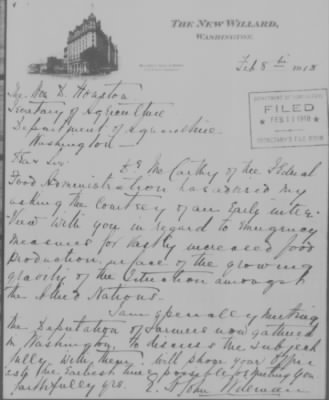 THE NEW WILLARD,
WASHINGTON.
Feb 8th 1918
DEPARTMENT OF AGRICULTURE
FILED
FEB 1918
SECRETARY'S FILE ROOM
The Hon D. Houston
Secretary of Agriculture
Department of Agriculture
Washington
Dear Sir
McCarthy of the Federal
Food Administration has advised my
asking the courtesy of an Early inter-
view with you in regard to Emergency
measures for vastly increased food
production, in face of the growing
gravity of the Situation amongst
the Allied Nations.
I am specially meeting
the Deputation of Farmers now gathered
in Washington, to discuss the subject
fully with them. Will phone your office
the Earliest time possible for putting you
faithfully yrs. E. St John